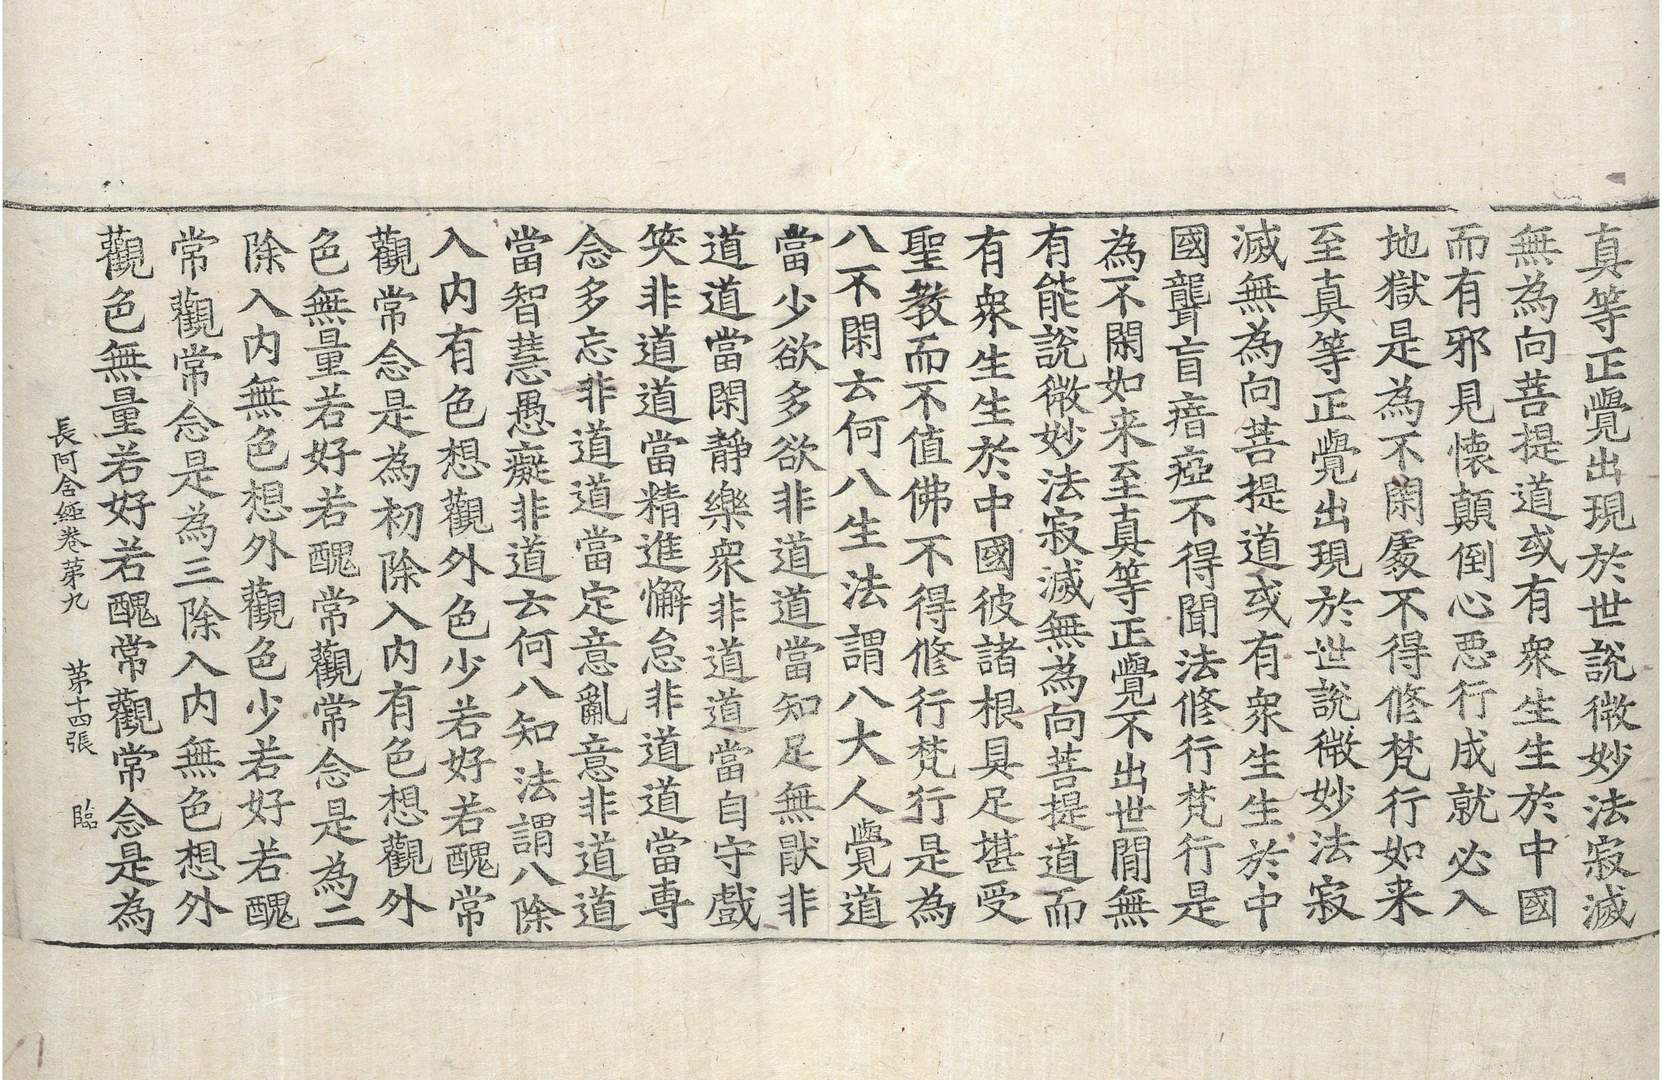 真等正覺出現於世說微妙法寂滅
無為向菩提道或有眾生生於中國
而有邪見懷顛倒心惡行成就必入
地獄是為不閑處不得修梵行如来
至真等正覺出現於世說微妙法寂
滅無為向菩提道或有眾生生於中
國聾盲瘖瘂不得聞法修行梵行是
為不閑如来至真等正覺不出世間無
有能說微妙法寂滅無為向菩提道而
有眾生生於中國彼諸根具足堪受
聖教而不值佛不得修行梵行是為
八不閑云何八生法謂八大人覺道
當少欲多欲非道道當知足無猒非
道道當閑靜樂眾非道道當自守戲
笑非道道當精進懈怠非道道當專
念多忘非道道當定意亂意非道道
當智慧愚癡非道云何八知法謂八除
入内有色想觀外色少若好若醜常
觀常念是為初除入内有色想觀外
色無量若好若醜常觀常念是為二
除入内無色想外觀色少若好若醜
常觀常念是為三除入内無色想外
觀色無量若好若醜常觀常念是為
長阿含經卷第九 第十四張 臨